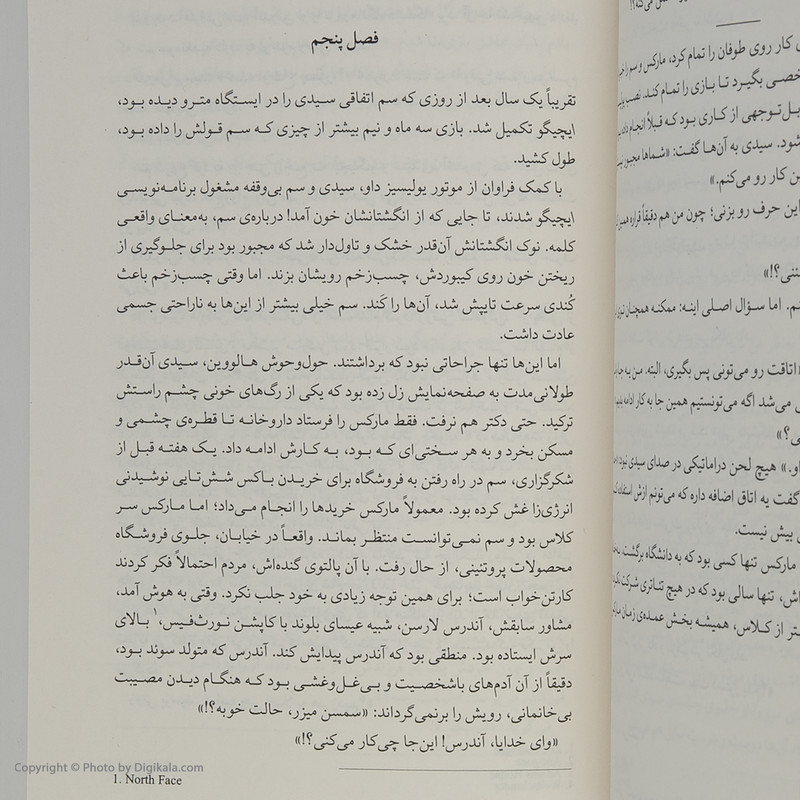 فصل پنجم
تقریباً یک سال بعد از روزی که سم اتفاقی سیدی را در ایستگاه مترو دیده بود،
ایچیگو تکمیل شد. بازی سه ماه و نیم بیشتر از چیزی که سم قولش را داده بود،
طول کشید.
با کمک فراوان از موتور یولیسیز داو، سیدی و سم بی‌وقفه مشغول برنامه‌نویسی
ایچیگو شدند، تا جایی که از انگشتانشان خون آمد! درباره‌ی سم، به‌معنای واقعی
کلمه. نوک انگشتانش آن‌قدر خشک و تاول‌دار شد که مجبور بود برای جلوگیری از
ریختن خون روی کیبوردش، چسب‌زخم رویشان بزند. اما وقتی چسب‌زخم باعث
کُندی سرعت تایپش شد، آن‌ها را کَند. سم خیلی بیشتر از این‌ها به ناراحتی جسمی
عادت داشت.
اما این‌ها تنها جراحاتی نبود که برداشتند. حول‌وحوش هالووین، سیدی آن‌قدر
طولانی‌مدت به صفحه‌نمایش زل زده بود که یکی از رگ‌های خونی چشم راستش
ترکید. حتی دکتر هم نرفت. فقط مارکس را فرستاد داروخانه تا قطره‌ی چشمی و
مسکن بخرد و به هر سختی‌ای که بود، به کارش ادامه داد. یک هفته قبل از
شکرگزاری، سم در راه رفتن به فروشگاه برای خریدن باکس شش‌تایی نوشیدنی
انرژی‌زا غش کرده بود. معمولاً مارکس خریدها را انجام می‌داد؛ اما مارکس سر
کلاس بود و سم نمی‌توانست منتظر بماند. واقعاً در خیابان، جلوی فروشگاه
محصولات پروتئینی، از حال رفت. با آن پالتوی گنده‌اش، مردم احتمالاً فکر کردند
کارتن‌خواب است؛ برای همین توجه زیادی به خود جلب نکرد. وقتی به هوش آمد،
مشاور سابقش، آندرس لارسن، شبیه عیسای بلوند با کاپشن نورث‌فیس،۱ بالای
سرش ایستاده بود. منطقی بود که آندرس پیدایش کند. آندرس که متولد سوئد بود،
دقیقاً از آن آدم‌های باشخصیت و بی‌غل‌وغشی بود که هنگام دیدن مصیبت
بی‌خانمانی، رویش را برنمی‌گرداند: «سمسن میزر، حالت خوبه؟!»
«وای خدایا، آندرس! این‌جا چی‌کار می‌کنی؟!»
1. North Face
کار روی طوفان را تمام کرد، مارکس و سم را
بگیرد تا بازی را تمام کند.
توجهی از کاری بود که قبلاً انجام
شود. سیدی به آن‌ها گفت: «شماها مجبور
کار رو می‌کنم.»
این حرف رو بزنی؛ چون من هم دقیقاً قراره
اما سؤال اصلی اینه: ممکنه همچنان
اتاقت رو می‌تونی پس بگیری، البته. من به
می‌شد اگه می‌تونستیم همین جا به کار ادامه
هیچ لحن دراماتیکی در صدای سیدی نبود
گفت یه اتاق اضافه داره که می‌تونم ازش استفاده
بیش نیست.
مارکس تنها کسی بود که به دانشگاه برگشت.
تنها سالی بود که در هیچ تئاتری شرکت
از کلاس، همیشه بخش عمده‌ی زمان
Copyright © Photo by Digikala.com